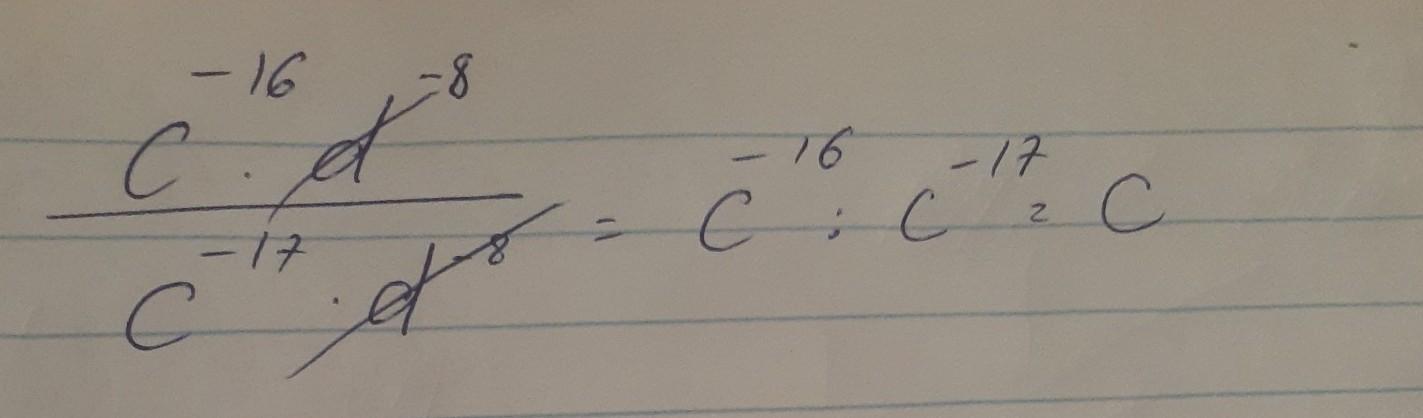 C^-16 · d^-8
C^-17 · d^-8 = C^-16 : C^-17 = C